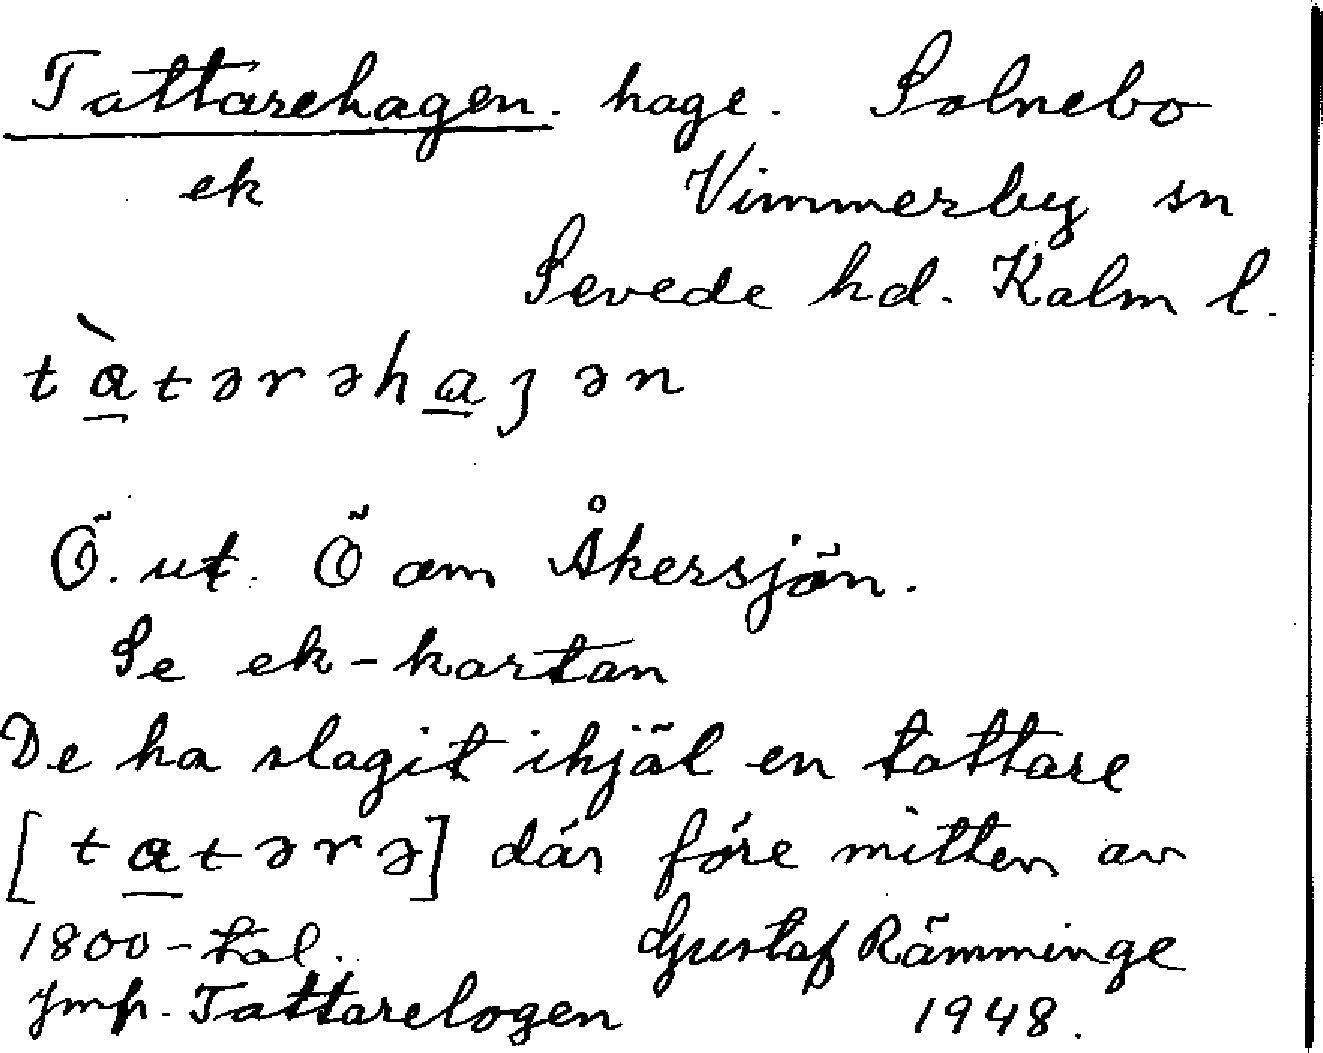 Tattarehagen. hage. Solnebo
ek Vimmerby sn
Sevede hd. Kalm l.
tàtərəhaʒən
Ö. ut. Ö om Åkersjön.
Se ek-kartan
De ha slagit ihjäl en tattare
[tatərə] där före mitten av
1800-tal. Gustaf Rämminge
Jmfr. Tattarelogen 1948.